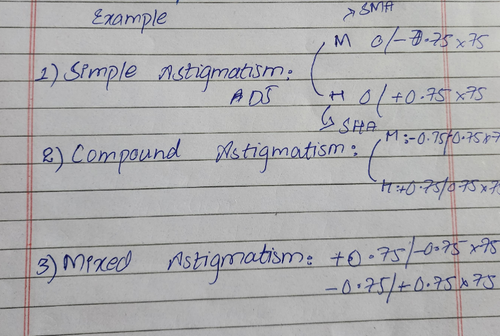 Example
→SMA
M 0/-0.75×75
1) Simple Astigmatism:
ADJ
H 0/+0.75×75
↳ SHA
2) Compound Astigmatism:
M:-0.75/-0.75×7
H:+0.75/0.75×7
3) Mixed Astigmatism: +0.75/-0.75×75
-0.75/+0.75×75